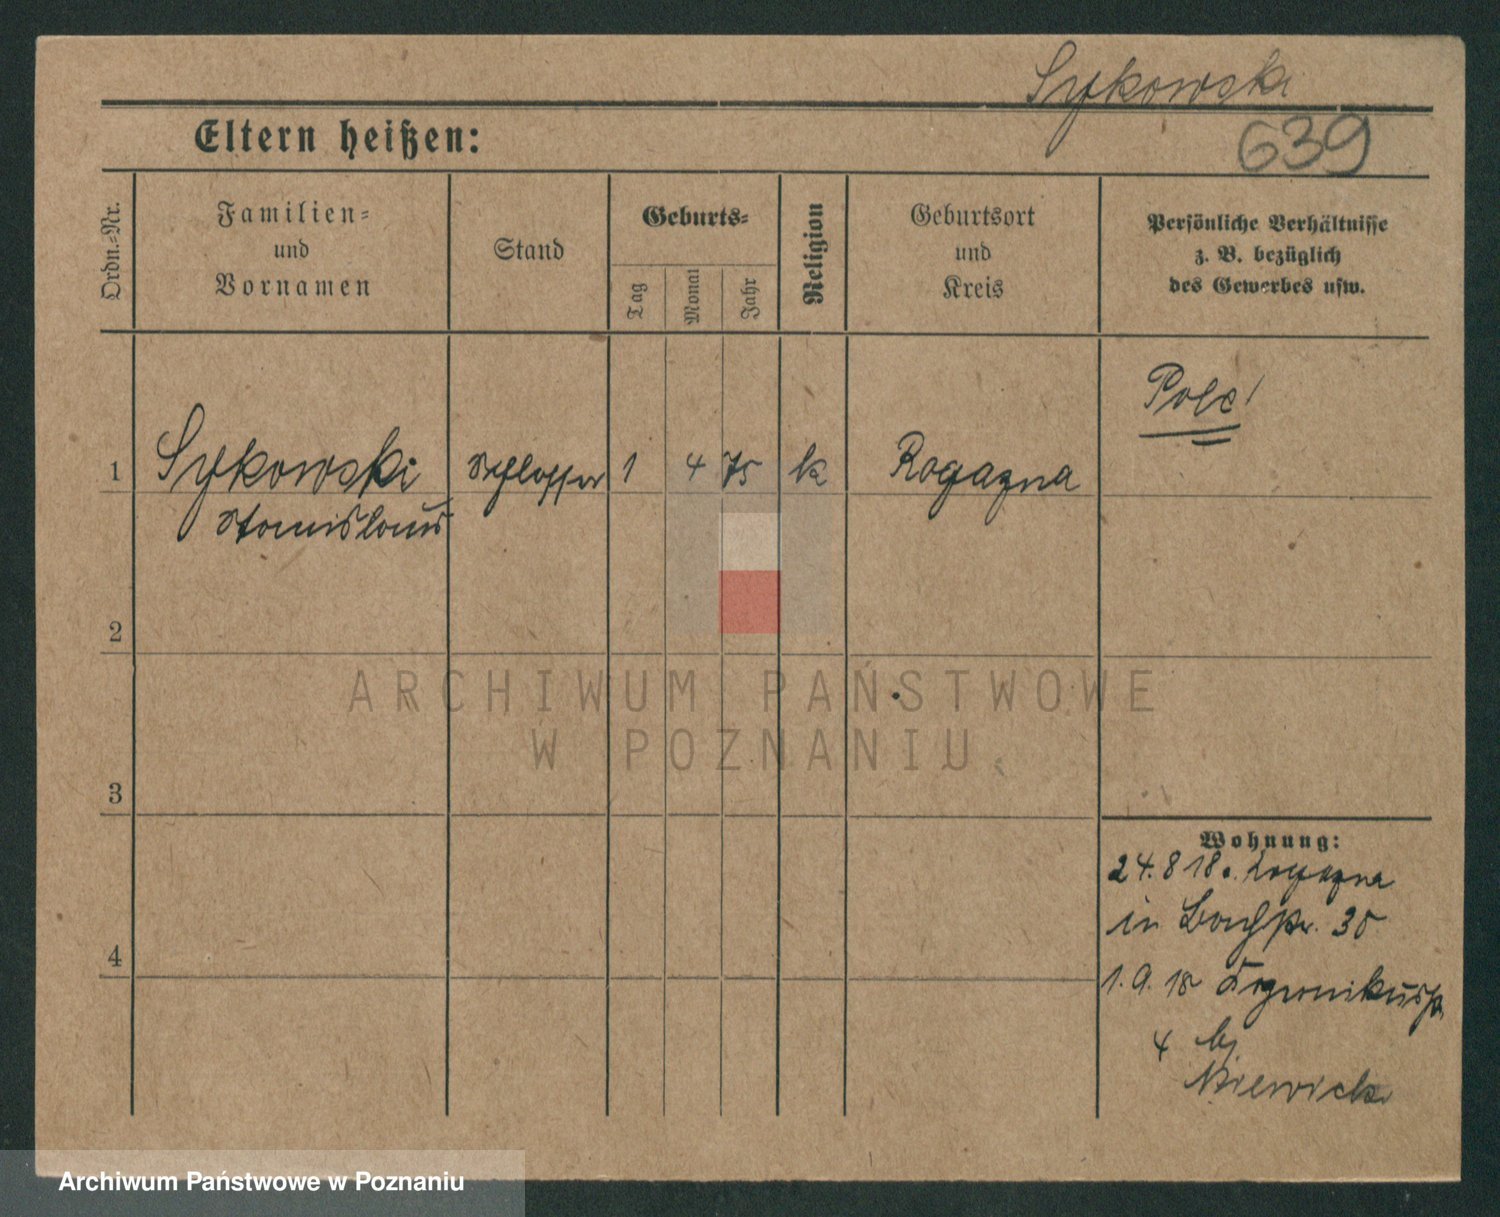 Sytkowski
639
Eltern heißen:
Ordn.-Nr.
Familien-
und
Vornamen
Stand
Geburts-
Tag
Monat
Jahr
Religion
Geburtsort
und
Kreis
Persönliche Verhältnisse
z. B. bezüglich
des Gewerbes usw.
Pole!
1 Sytkowski Schlosser 1 4 75 k Rogazna
Stanislaus
2
ARCHIWUM PAŃSTWOWE
W POZNANIU
3
Wohnung:
24. 8 18. Rogazna
in 30
4
1. 9. 18
4 bj
Archiwum Państwowe w Poznaniu